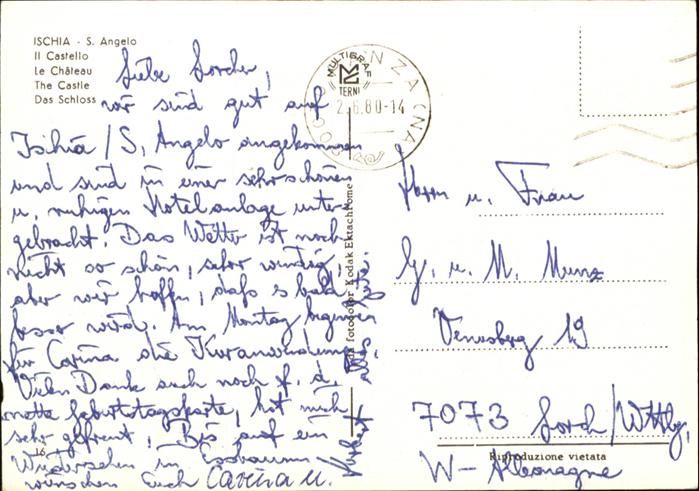 ISCHIA - S. Angelo
Il Castello
Le Château
The Castle
Das Schloss
Liebe Lorcher,
wir sind gut auf
Ischia / S. Angelo angekommen
und sind in einer sehr schönen
u. ruhigen Hotelanlage unter-
gebracht. Das Wetter ist noch
nicht so schön, sehr windig,
aber wir hoffen, daß es bald
besser wird. Am Montag beginnen
für Carina die Kuranwendungen.
Vielen Dank auch noch f. d.
nette Geburtstagskarte, hat mich
sehr gefreut. Bis auf ein
Wiedersehen in
wünschen Euch Carina u.
Hubert alles Gute.
MULTIGRAF
TERNI
2.6.80-14
da fotocolor Kodak Ektachrome
Herrn u. Frau
G. u. M. Munz
Venusberg 19
7073 Lorch/Wttbg.
W-Allemagne
Riproduzione vietata
16